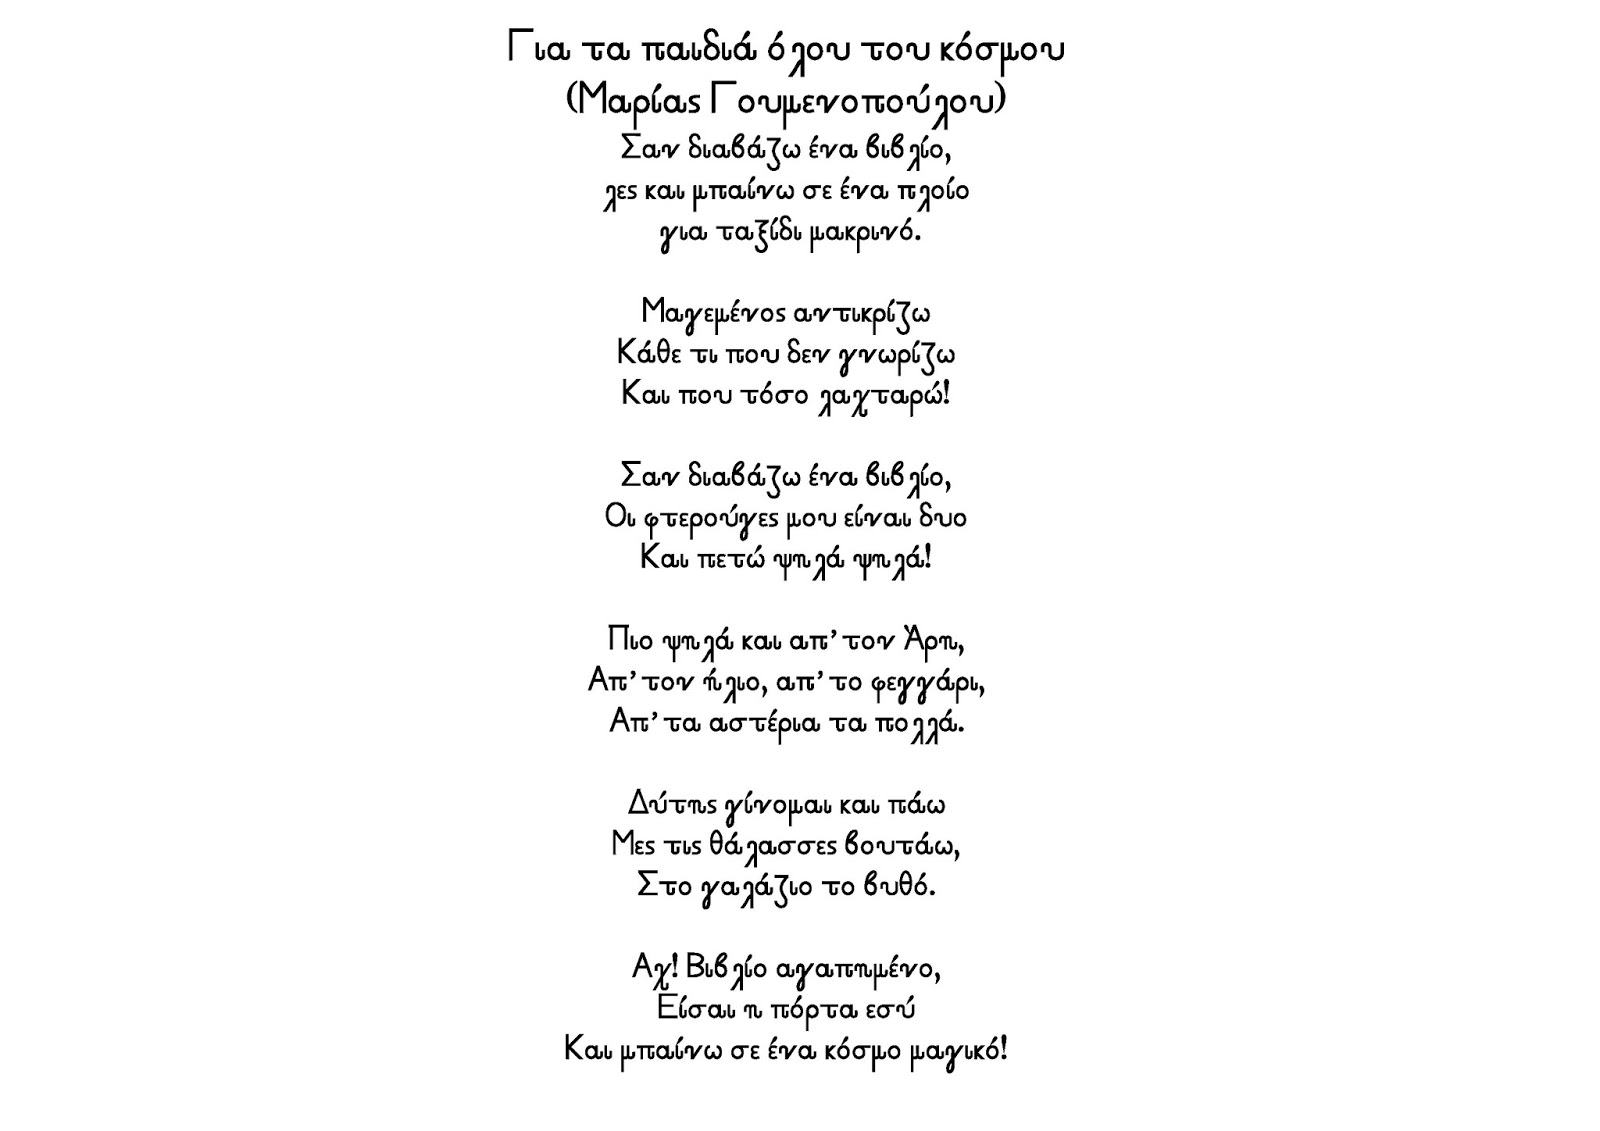 Για τα παιδιά όλου του κόσμου
(Μαρίας Γουμενοπούλου)
Σαν διαβάζω ένα βιβλίο,
λες και μπαίνω σε ένα πλοίο
για ταξίδι μακρινό.
Μαγεμένος αντικρίζω
Κάθε τι που δεν γνωρίζω
Και που τόσο λαχταρώ!
Σαν διαβάζω ένα βιβλίο,
Οι φτερούγες μου είναι δυο
Και πετώ ψηλά ψηλά!
Πιο ψηλά και απ’ τον Άρη,
Απ’ τον ήλιο, απ’ το φεγγάρι,
Απ’ τα αστέρια τα πολλά.
Δύτης γίνομαι και πάω
Μες τις θάλασσες βουτάω,
Στο γαλάζιο το βυθό.
Αχ! Βιβλίο αγαπημένο,
Είσαι η πόρτα εσύ
Και μπαίνω σε ένα κόσμο μαγικό!